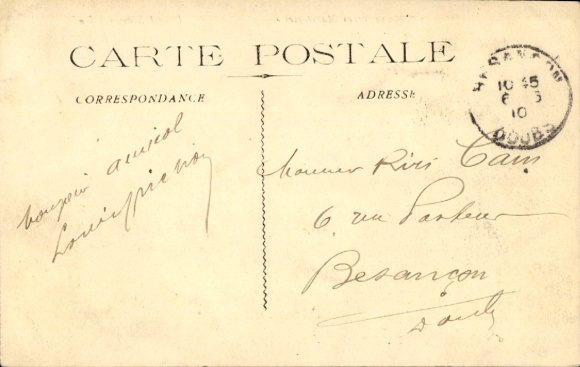 CARTE POSTALE
CORRESPONDANCE
ADRESSE
10 45
10
DOUBS
bonjour amical
Louis
Monsieur
6 rue Pasteur
Besançon
Doubs